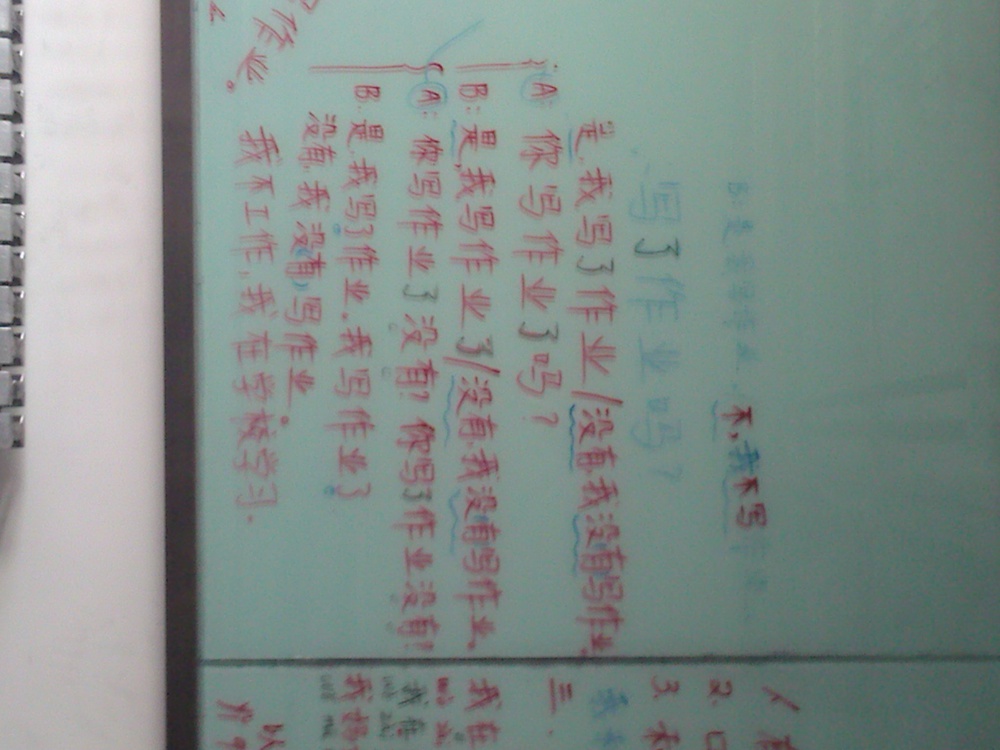 B: 是我写作业. 不,我不写
写了作业吗?
是,我写了作业/没有我没有写作业
A: 你写作业了吗?
B: 是,我写作业了/没有,我没有写作业.
A: 你写作业了没有? 你写了作业没有?
B: 是,我写了作业,我写作业了
没有,我没有写作业。
我不工作,我在学校学习.
作业。
2. 口
3.
三.
我在
我在
我